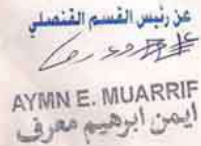 عن رئيس القسم القنصلي
AYMN E. MUARRIF
ايمن ابرهيم معرف